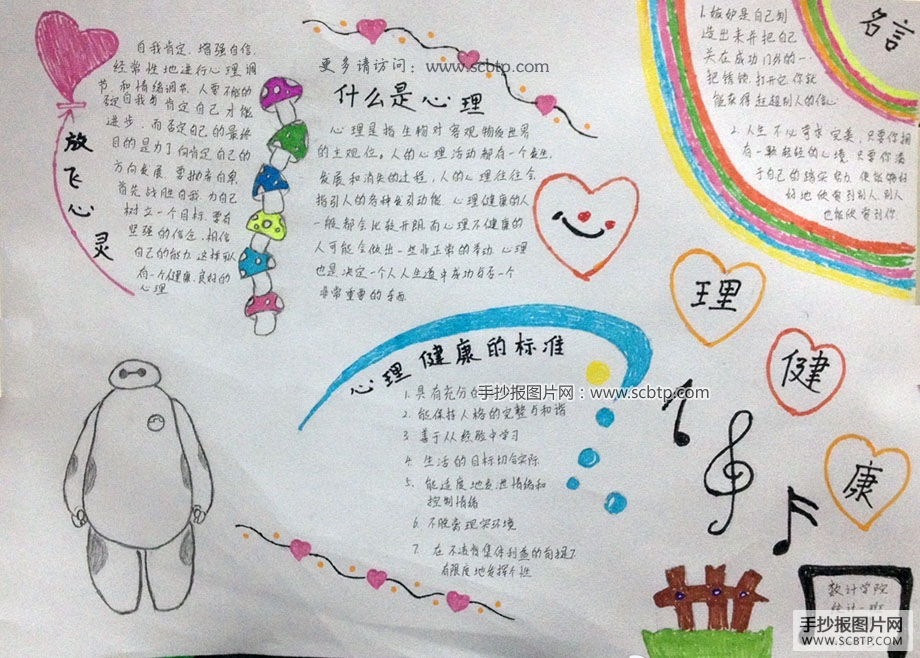 放飞心灵
自我肯定，增强自信，
经常性地进行心理调
节和情绪调节，人要不断的
否定自我与肯定自己才能
进步，而否定自己的最终
目的是为了向肯定自己的
方向发展
首先战胜自我，为自己
树立一个目标，要有
坚强的信念，相信
自己的能力，这样可以
有一个健康、良好的
心理
更多请访问：www.scbtp.com
什么是心理
心理是指生物对客观物质世界
的主观反应。人的心理活动都有一个发生，
发展和消失的过程，人的心理往往会
指引人的各种行动能 心理健康的人
一般都会比较开朗而心理不健康的
人可能会做出一些非正常的举动，心理
也是决定一个人人生道路中成功与否一个
非常重要的方面
名言
1.嫉妒是自己制
造出来并把自己
关在成功门外的一
把锈锁，打开它你就
能获得赶超别人的信心
2.人生不必苛求完美，只要你拥
有一颗轻轻的心境，只要你满
于自己的踏实努力，便能够好
好地欣赏别别人，别人
也能欣赏到你
心理健康的标准
1.具有充分的
手抄报图片网：www.scbtp.com
2.能保持人格的完整与和谐
3 善于从经验中学习
4.生活的目标切合实际
5.能适度地发泄情绪和
控制情绪
6.不脱离现实环境
7.在不违背集体利益的前提下
有限度地发挥个性
理
健
康
数计学院
统计一班
手抄报图片网
SCBTP.COM